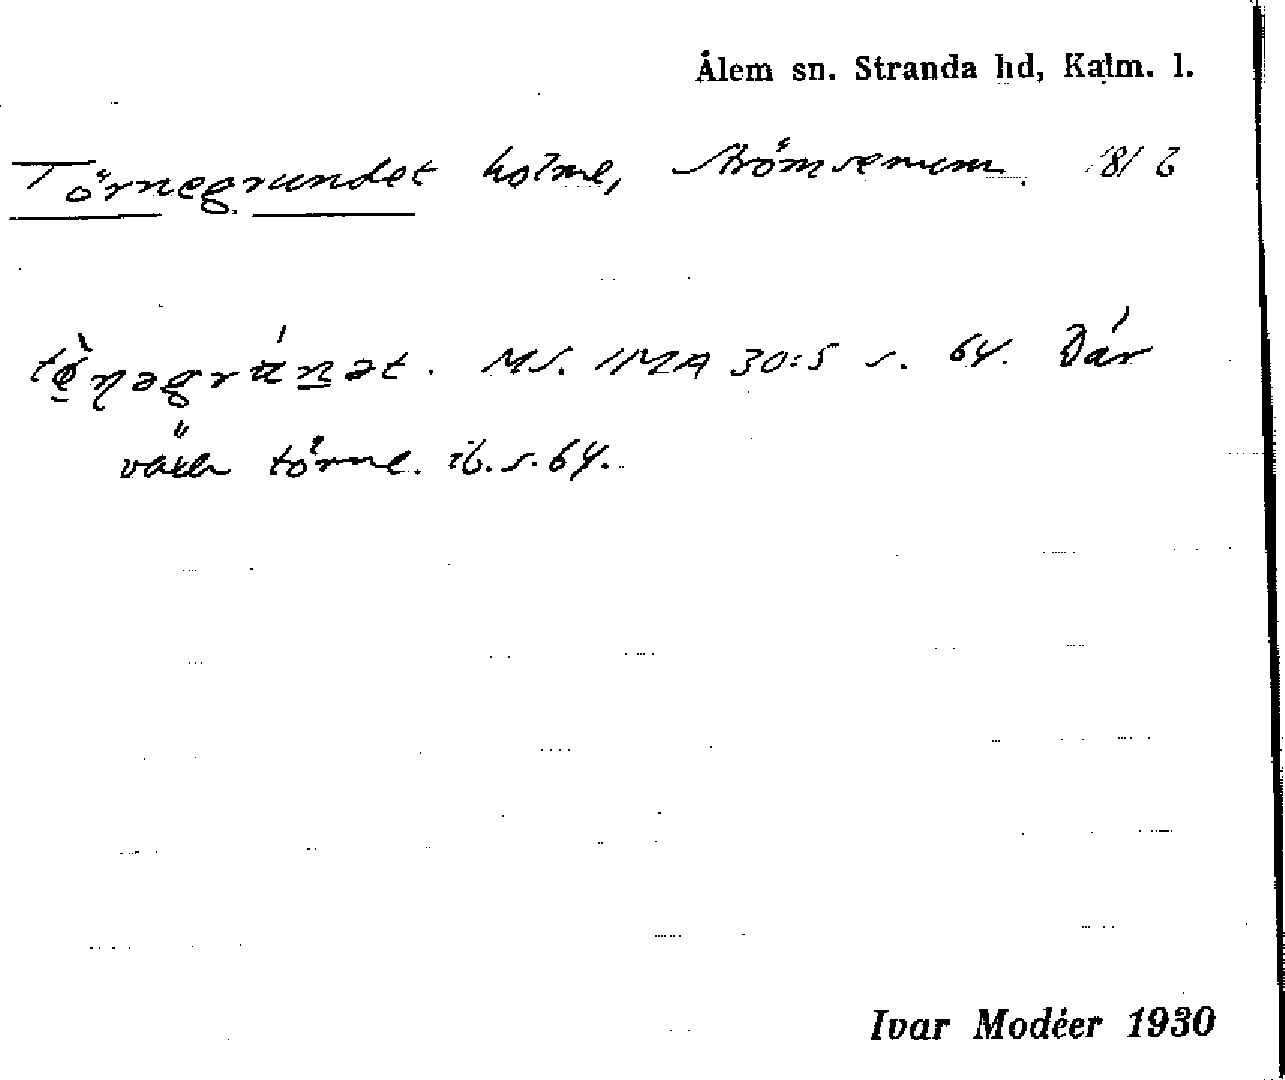 Ålem sn. Stranda hd, Kalm. l.
Törnegrundet holme, Strömsemum. 18/6
tö̀ṇəgrúnət. MS. IMA 30:5 s. 64. Där
växer törne. ib. s. 64.
Ivar Modéer 1930